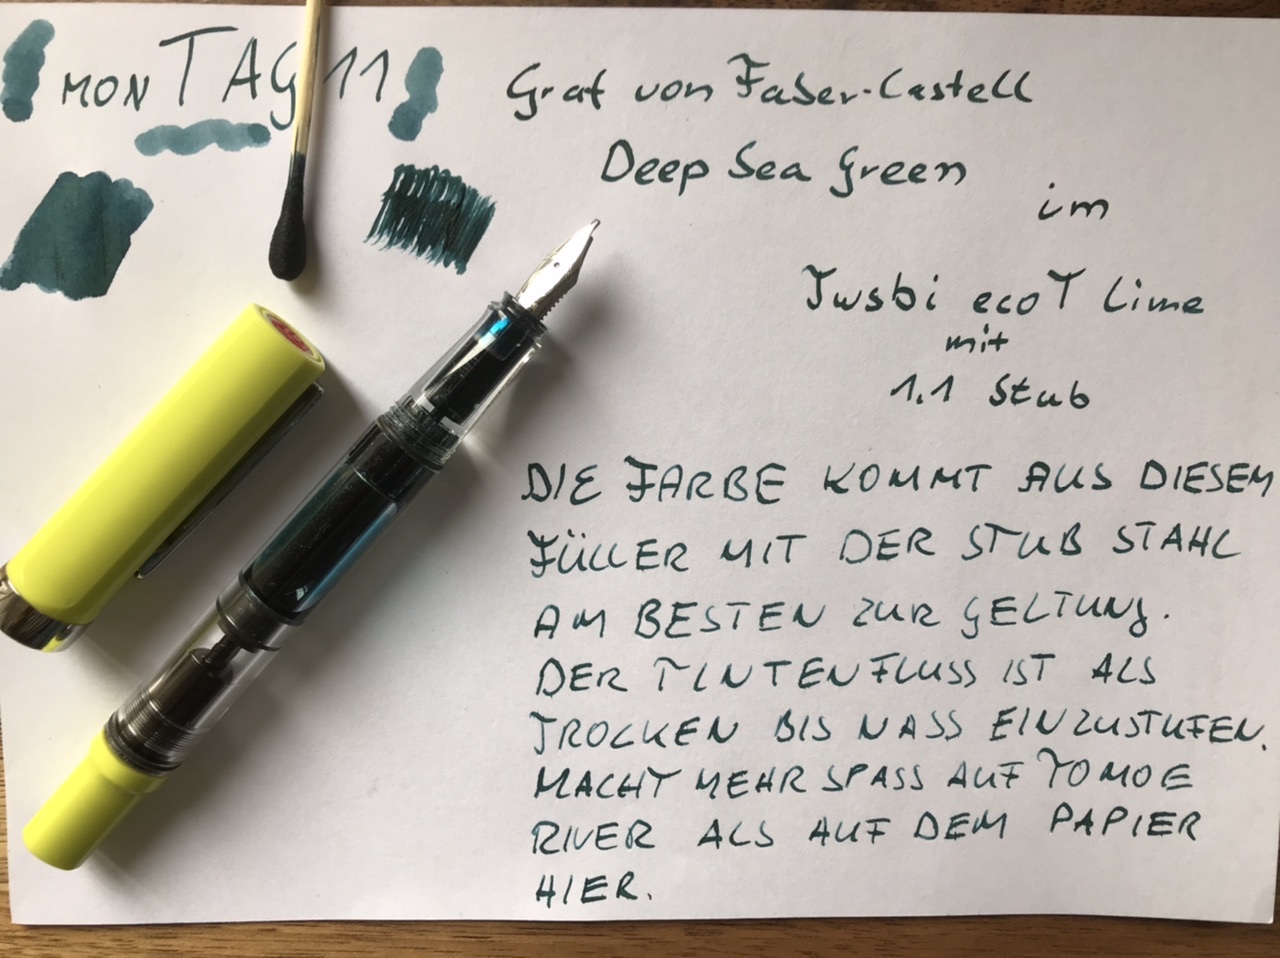 MONTAG 11
Graf von Faber-Castell
Deep Sea Green
im
Twsbi ecoT Lime
mit
1.1 Stub
DIE FARBE KOMMT AUS DIESEM
FÜLLER MIT DER STUB STAHL
AM BESTEN ZUR GELTUNG.
DER TINTENFLUSS IST ALS
TROCKEN BIS NASS EINZUSTUFEN.
MACHT MEHR SPASS AUF TOMOE
RIVER ALS AUF DEM PAPIER
HIER.